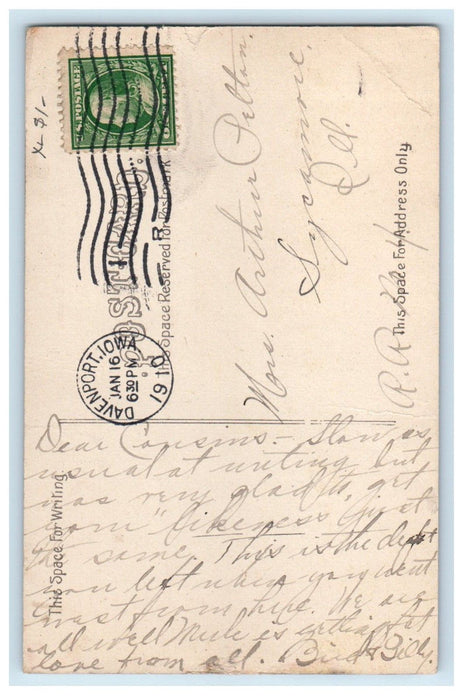 x $1-
U.S. POSTAGE
POST CARD.
This Space Reserved for Postmark
R
DAVENPORT, IOWA
JAN 16
6 30 PM
1910
Mrs. Arthur Pelton.
Sycamore,
Ill.
R.R. #4
This Space For Address Only.
This Space For Writing.
Dear Cousins.- Slow as
usual at writing but
was very glad to get
your "likeness" just
the same. This is the depot
you left when you went
west from here. We are
all well Merle is getting fat
love from all. Bird & Billy.